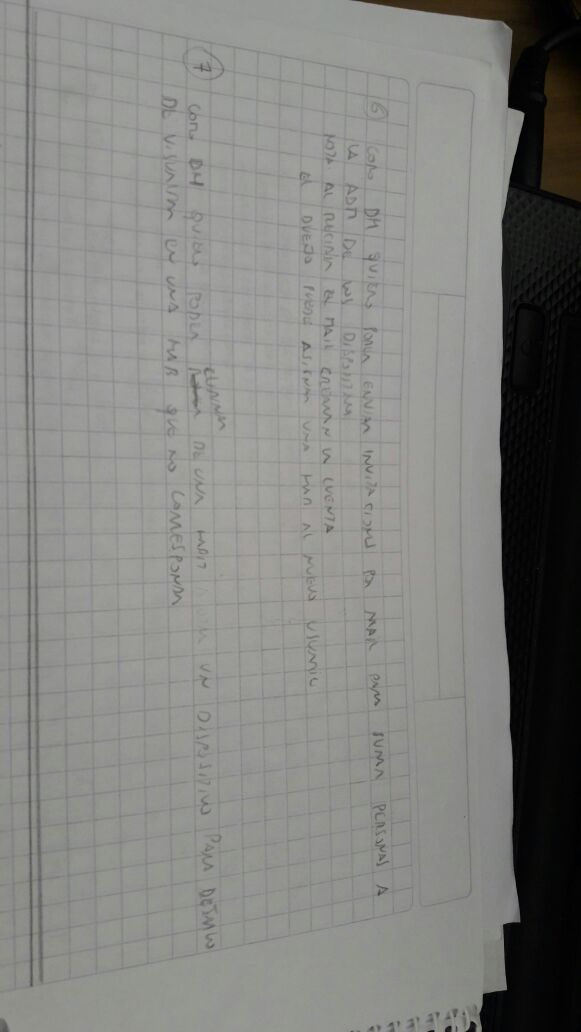 6 COMO DH QUIERO PODER ENVIAR INVITACIONES POR MAIL PARA SUMAR PERSONAS A
LA ADM DE LOS DISPOSITIVOS
NOTA AL RECIBIR EL MAIL CREARAN LA CUENTA
EL DUEÑO PUEDE ASIGNAR UNA HAB AL NUEVO USUARIO
7 COMO DH QUIERO PODER ELIMINAR DE UNA UN DISPOSITIVO PARA DEJARLO
DE VISUALIZAR EN UNA HAB QUE NO CORRESPONDA